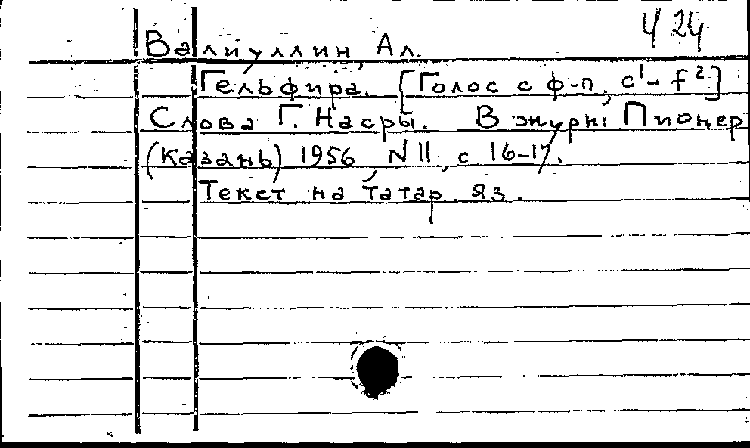 Ч 24
Валиуллин, Ал.
Гельфира. [Голос с ф-п, c¹- f²]
Слова Г. Насры. В журн: Пионер
(Казань) 1956, N 11, с 16-17.
Текст на татар. яз.